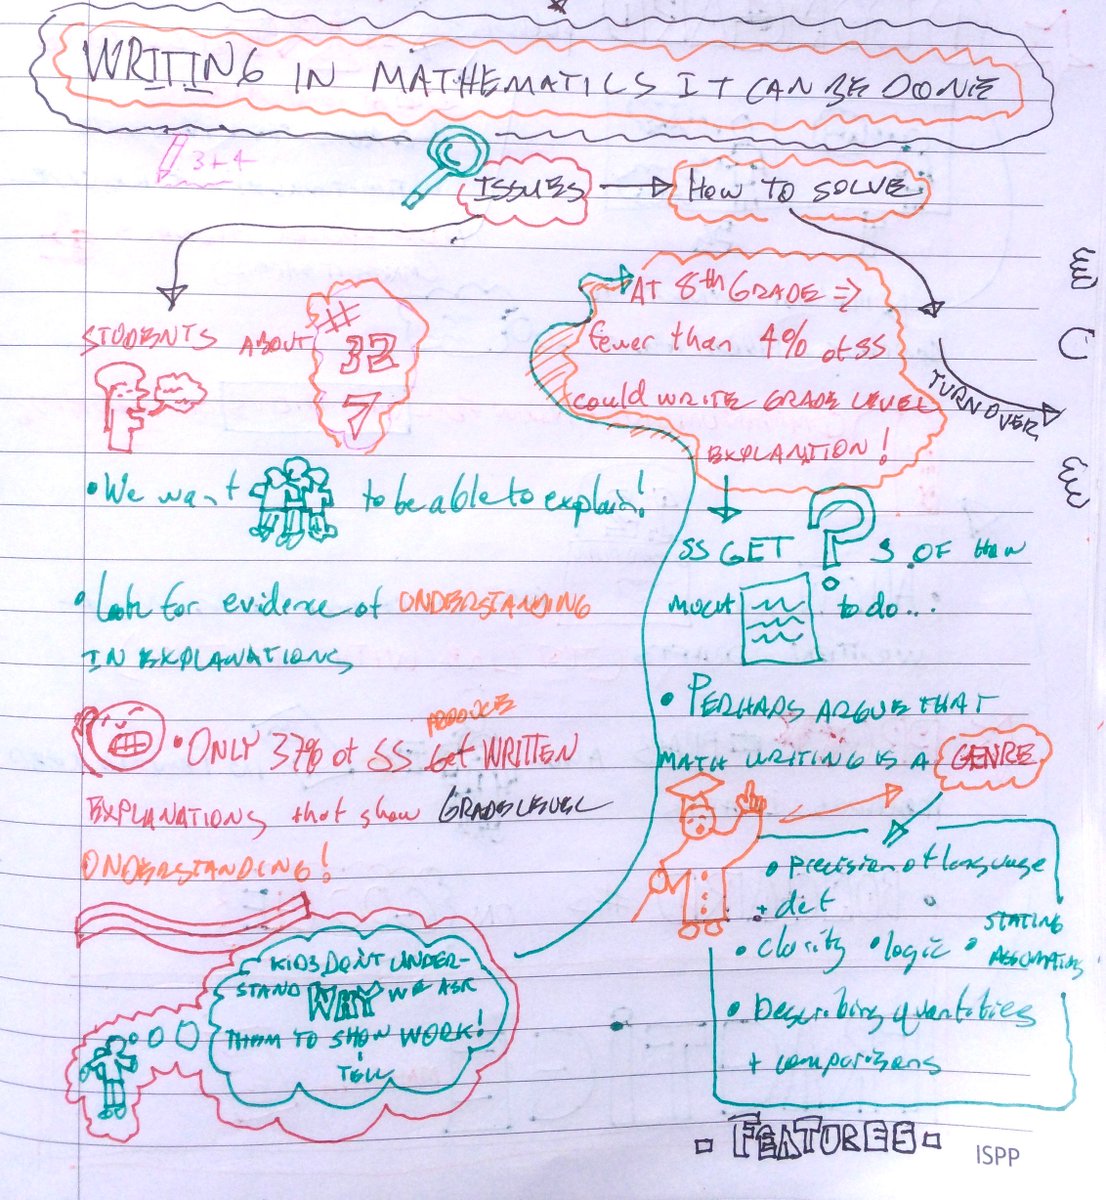 WRITING IN MATHEMATICS IT CAN BE DONE
3+4
ISSUES
HOW TO SOLVE
TURN OVER
STUDENTS ABOUT #
32
7
• We want to be able to explain!
• Look for evidence of UNDERSTANDING
IN EXPLANATIONS
PRODUCE
• ONLY 37% of SS get WRITTEN
EXPLANATIONS that show GRADE LEVEL
UNDERSTANDING!
KIDS DON'T UNDER-
STAND WHY WE ASK
THEM TO SHOW WORK!
+
TELL
AT 8th GRADE =>
fewer than 4% of SS
could WRITE GRADE LEVEL
EXPLANTION!
SS GET ?S OF HOW
MUCH to do...
• PERHAPS ARGUE THAT
MATH WRITING IS A GENRE
• precision of language
+ dict
• clarity • logic • STATING
ASSUMPTIONS
• Describing quantities
+ comparisons
• FEATURES •
ISPP